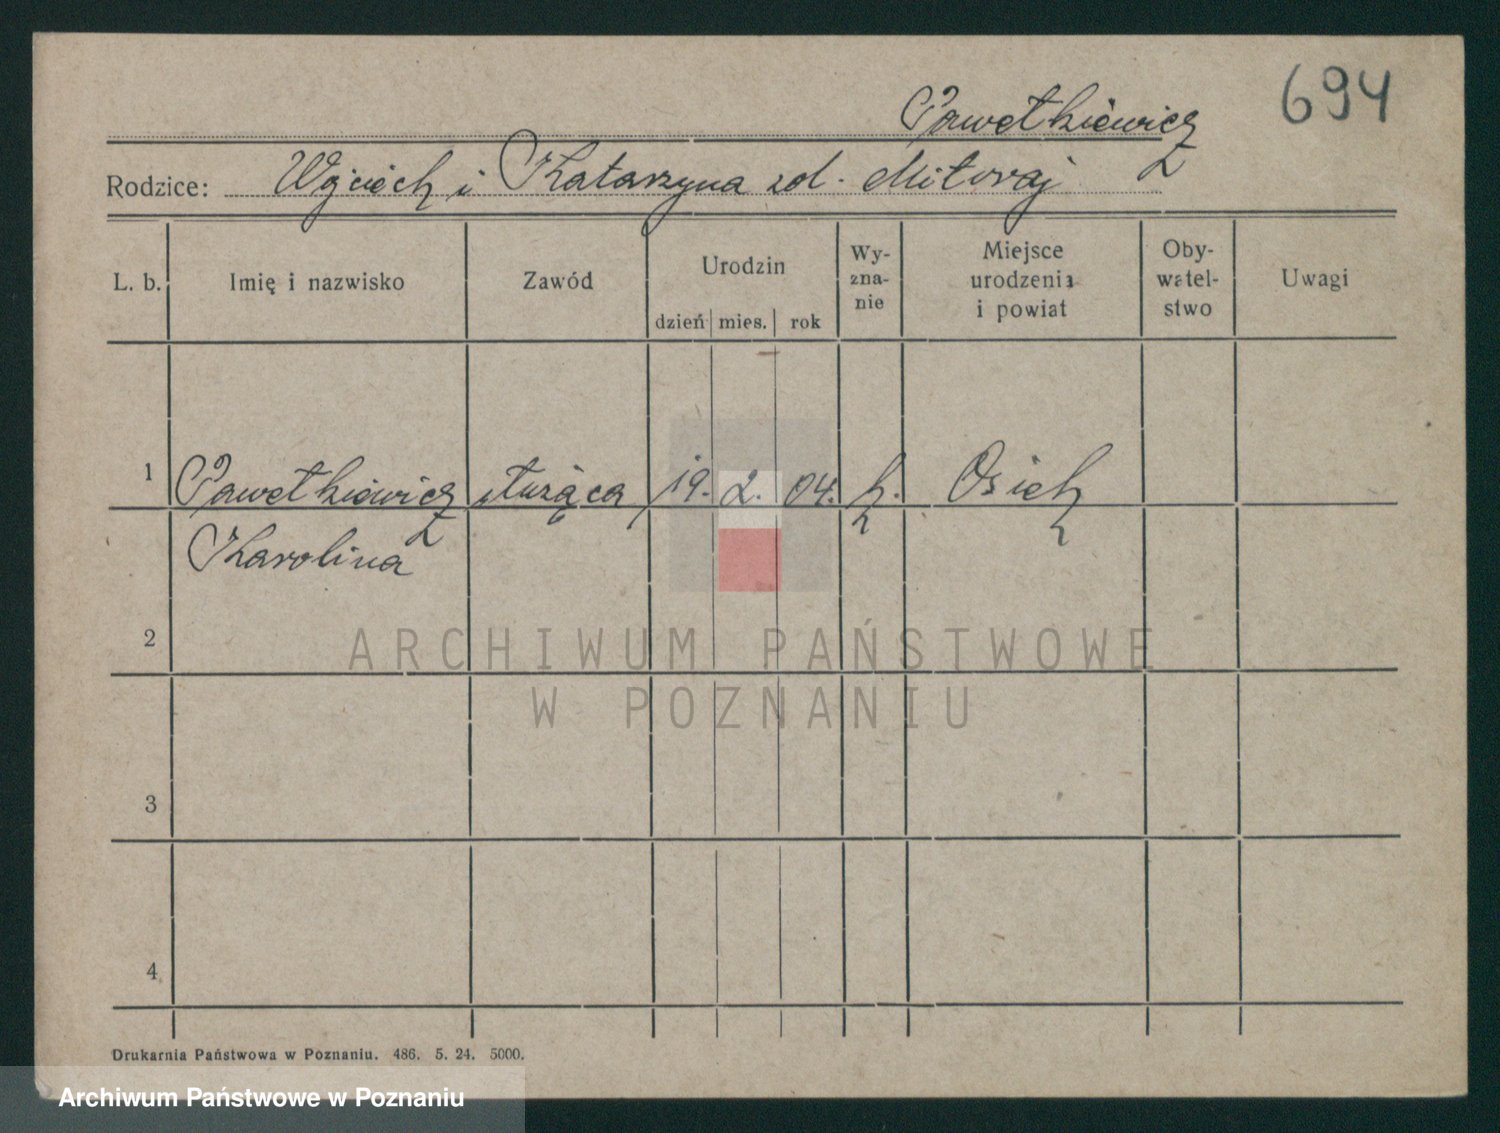 694
Pawełkiewicz
Rodzice: Wojciech i Katarzyna zd. Mitoraj
L. b. Imię i nazwisko Zawód Urodzin dzień mies. rok Wy-zna-nie Miejsce urodzenia i powiat Oby-watel-stwo Uwagi
1 Pawełkiewicz służąca 19. 2. 04. k. Osiek
Karolina
2
ARCHIWUM PAŃSTWOWE
W POZNANIU
3
4
Drukarnia Państwowa w Poznaniu. 486. 5. 24. 5000.
Archiwum Państwowe w Poznaniu